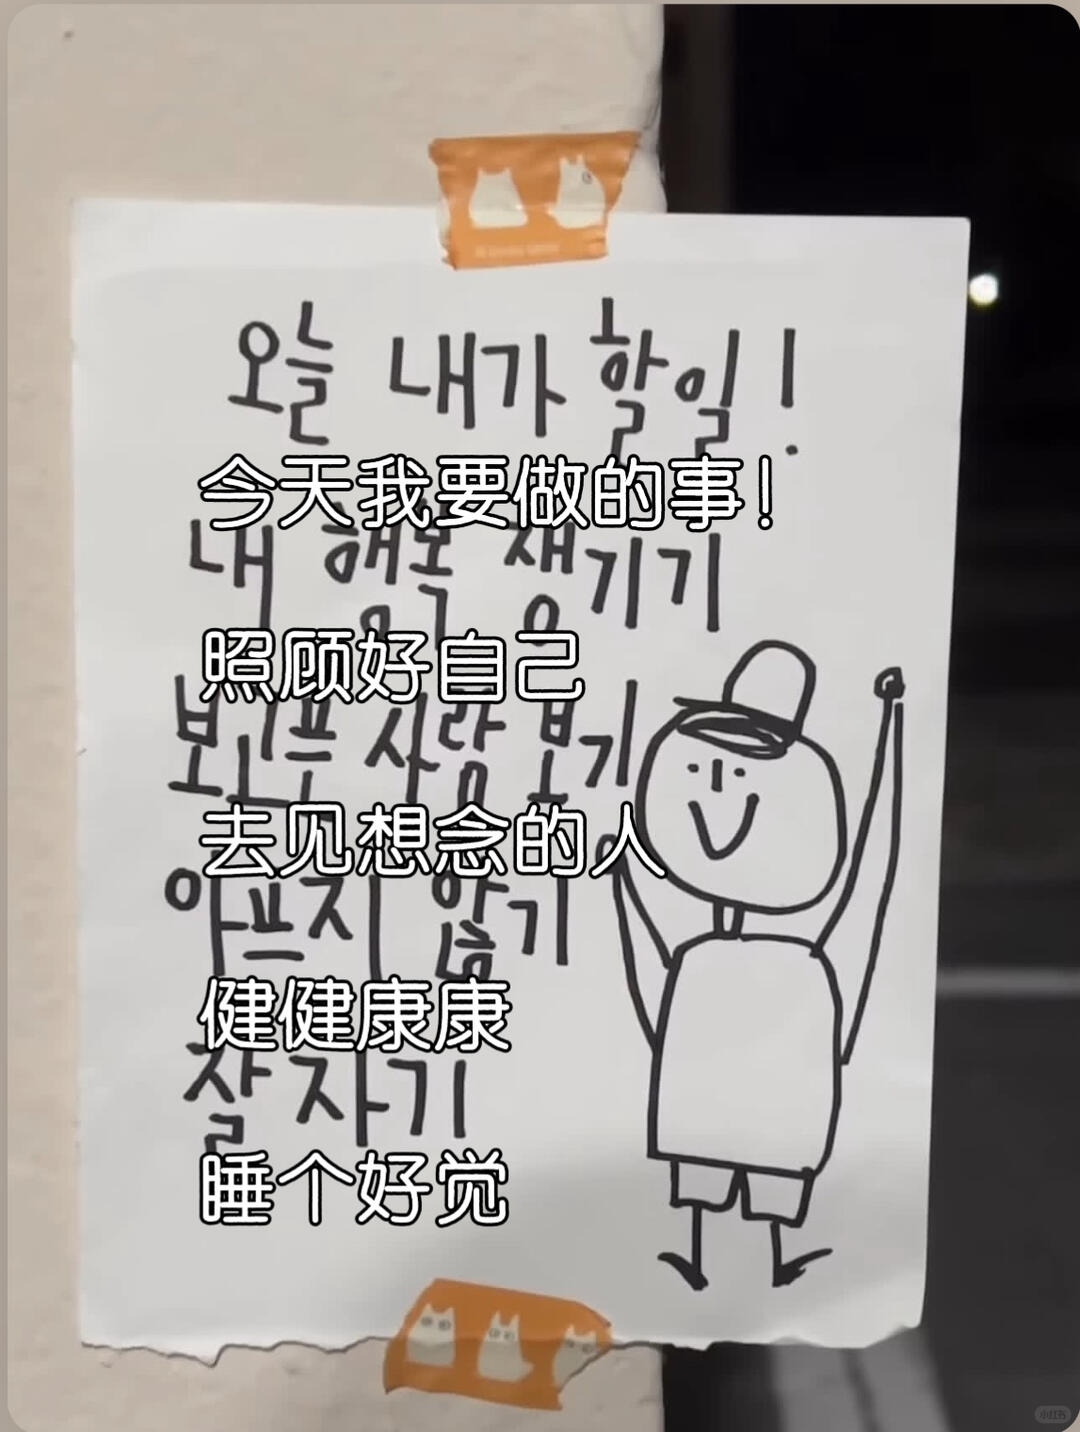 오늘 내가 할일!
今天我要做的事！
내 행복 챙기기
照顾好自己
보고픈 사람 보기
去见想念的人
아프지 않기
健健康康
잘 자기
睡个好觉
小红书